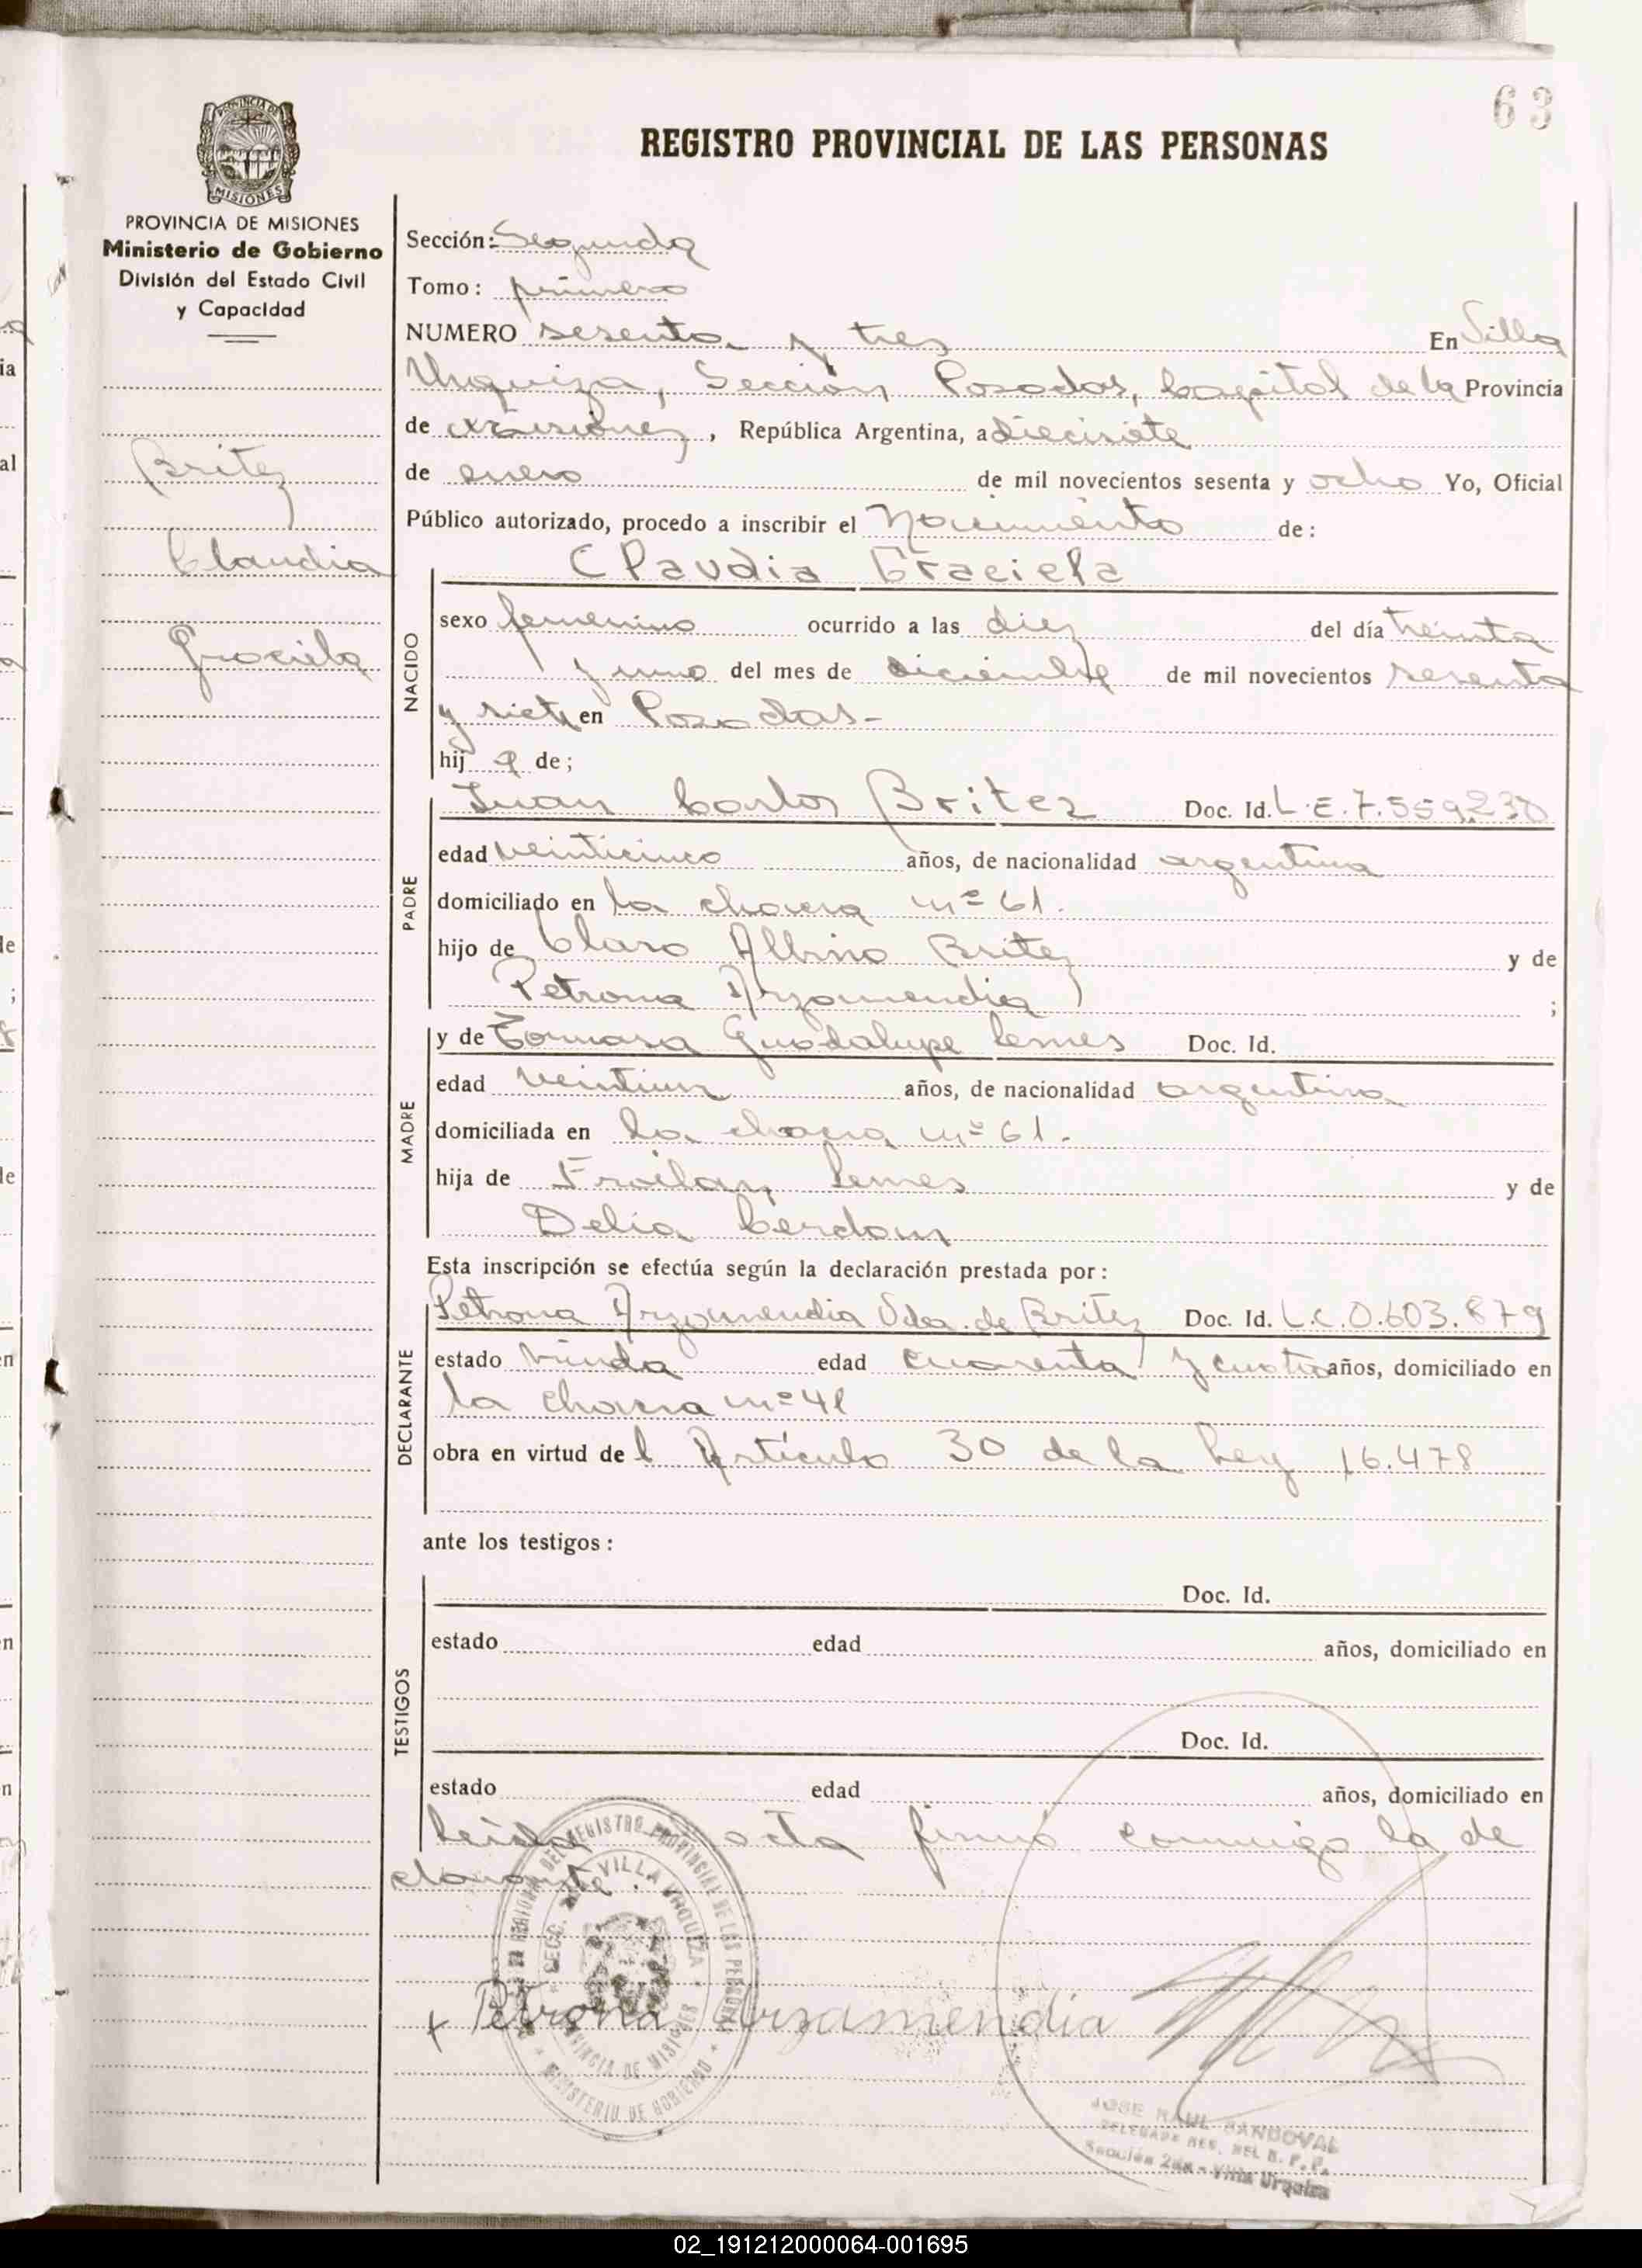 63
REGISTRO PROVINCIAL DE LAS PERSONAS
PROVINCIA DE MISIONES
Ministerio de Gobierno
División del Estado Civil
y Capacidad
Britez
Claudia
Graciela
Sección: Segunda
Tomo: primero
NUMERO sesenta y tres En Villa
Urquiza, Sección Posadas, Capital de la Provincia
de Misiones, República Argentina, a diecisiete
de enero de mil novecientos sesenta y ocho Yo, Oficial
Público autorizado, procedo a inscribir el Nacimiento de:
Claudia Graciela
NACIDO
sexo femenino ocurrido a las diez del día treinta
y uno del mes de diciembre de mil novecientos sesenta
y siete en Posadas-
hija de;
PADRE
Juan Carlos Britez Doc. Id. L.E.7.559.230
edad veinticinco años, de nacionalidad argentina
domiciliado en la chacra nº 61.
hijo de Claro Albino Britez y de
Petrona Arzamendia ;
MADRE
y de Tomasa Guadalupe Lemes Doc. Id.
edad veintiun años, de nacionalidad argentina
domiciliada en la chacra nº 61.
hija de Froilan Lemes y de
Delia Cerdan
Esta inscripción se efectúa según la declaración prestada por:
DECLARANTE
Petrona Arzamendia Vda. de Britez Doc. Id. L.C.0.603.879
estado viuda edad cuarenta y cuatro años, domiciliado en
la chacra nº 41
obra en virtud del Artículo 30 de la Ley 16.478
ante los testigos:
TESTIGOS
Doc. Id.
estado edad años, domiciliado en
Doc. Id.
estado edad años, domiciliado en
Leída acta firmó conmigo la de
clarante.
REGISTRO PROVINCIAL DE LAS PERSONAS
SECC. VILLA URQUIZA
PROVINCIA DE MISIONES
MINISTERIO DE GOBIERNO
x Petrona Arzamendia
JOSE RAUL SANDOVAL
DELEGADO REG. DEL R. P. P.
Sección 2da - Villa Urquiza
02_191212000064-001695